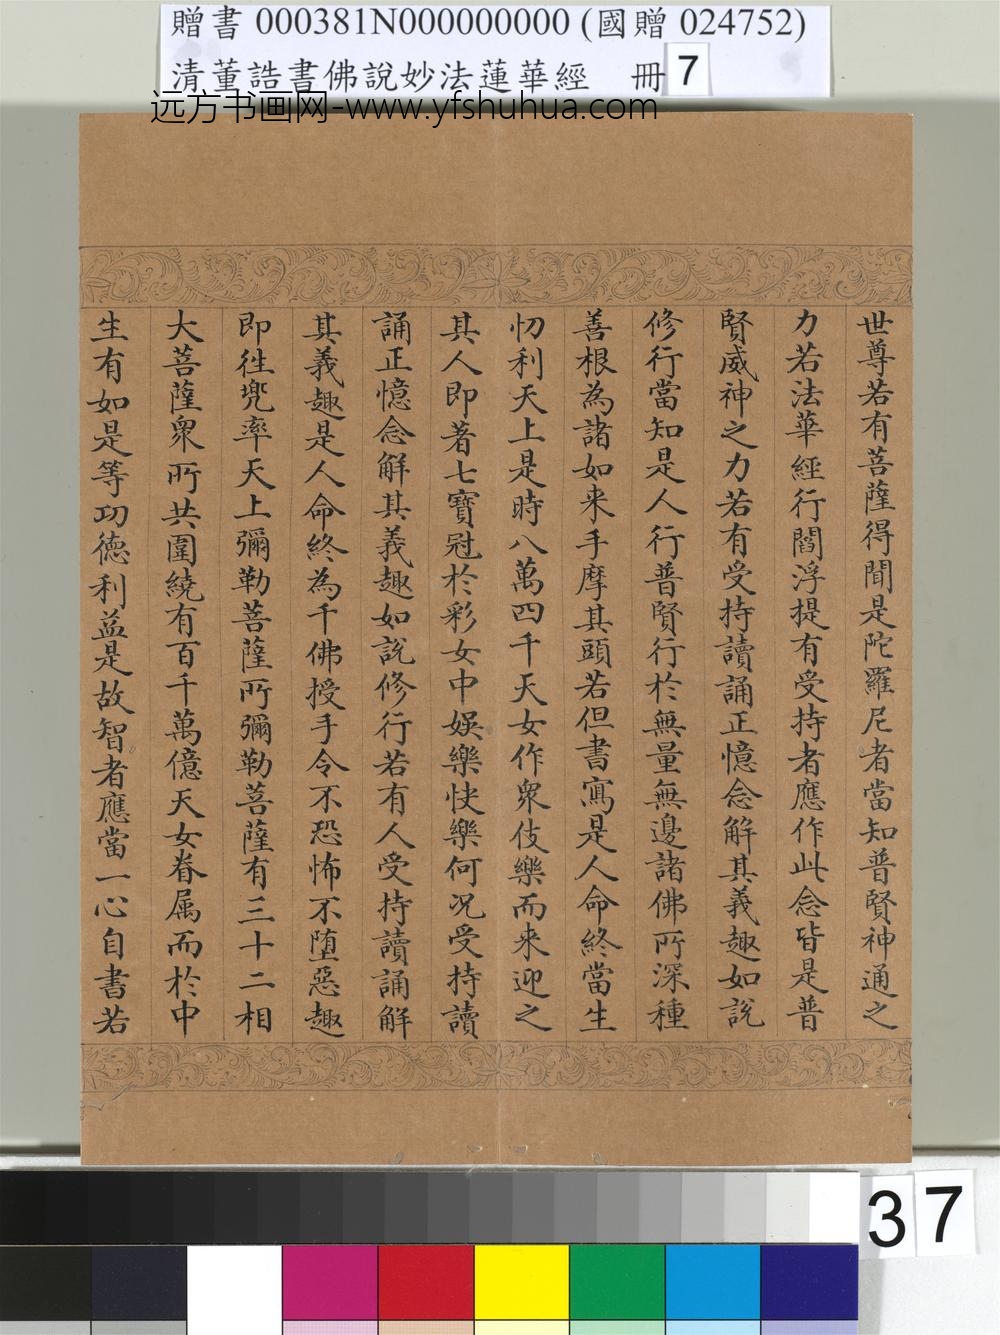 贈書 000381N000000000 (國贈 024752)
清董誥書佛說妙法蓮華經 冊 7
远方书画网-www.yfshuhua.com
世尊若有菩薩得聞是陀羅尼者當知普賢神通之
力若法華經行閻浮提有受持者應作此念皆是普
賢威神之力若有受持讀誦正憶念解其義趣如說
修行當知是人行普賢行於無量無邊諸佛所深種
善根為諸如来手摩其頭若但書寫是人命終當生
忉利天上是時八萬四千天女作眾伎樂而来迎之
其人即著七寶冠於彩女中娛樂快樂何況受持讀
誦正憶念解其義趣如說修行若有人受持讀誦解
其義趣是人命終為千佛授手令不恐怖不墮惡趣
即往兜率天上彌勒菩薩所彌勒菩薩有三十二相
大菩薩眾所共圍繞有百千萬億天女眷属而於中
生有如是等功德利益是故智者應當一心自書若
37